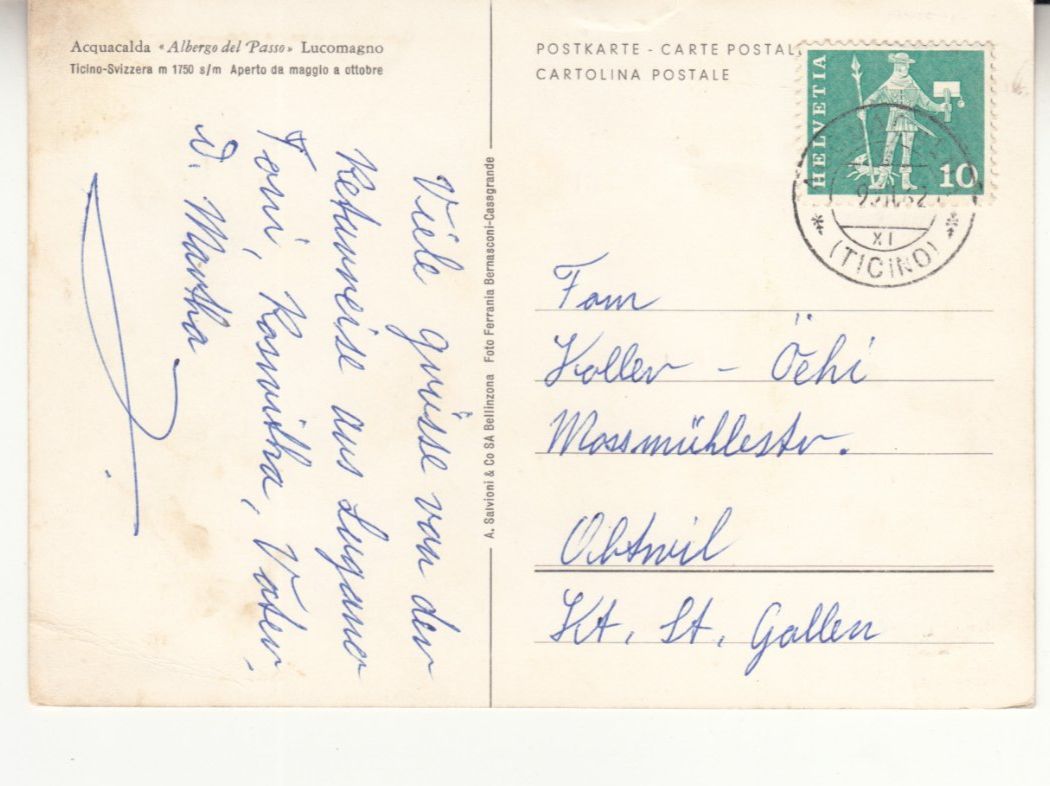 Acquacalda «Albergo del Passo» Lucomagno
Ticino-Svizzera m 1750 s/m Aperto da maggio a ottobre
Viele grüsse von der
Retourreise aus Lugano
Toni, Roswitha, Vater,
u. Martha
A. Salvioni & Co SA Bellinzona Foto Ferrania Bernasconi-Casagrande
POSTKARTE - CARTE POSTAL
CARTOLINA POSTALE
HELVETIA
10
XI
(TICINO)
Fam
Koller - Öehi
Mossmühlestr.
Abtwil
Kt. St. Gallen